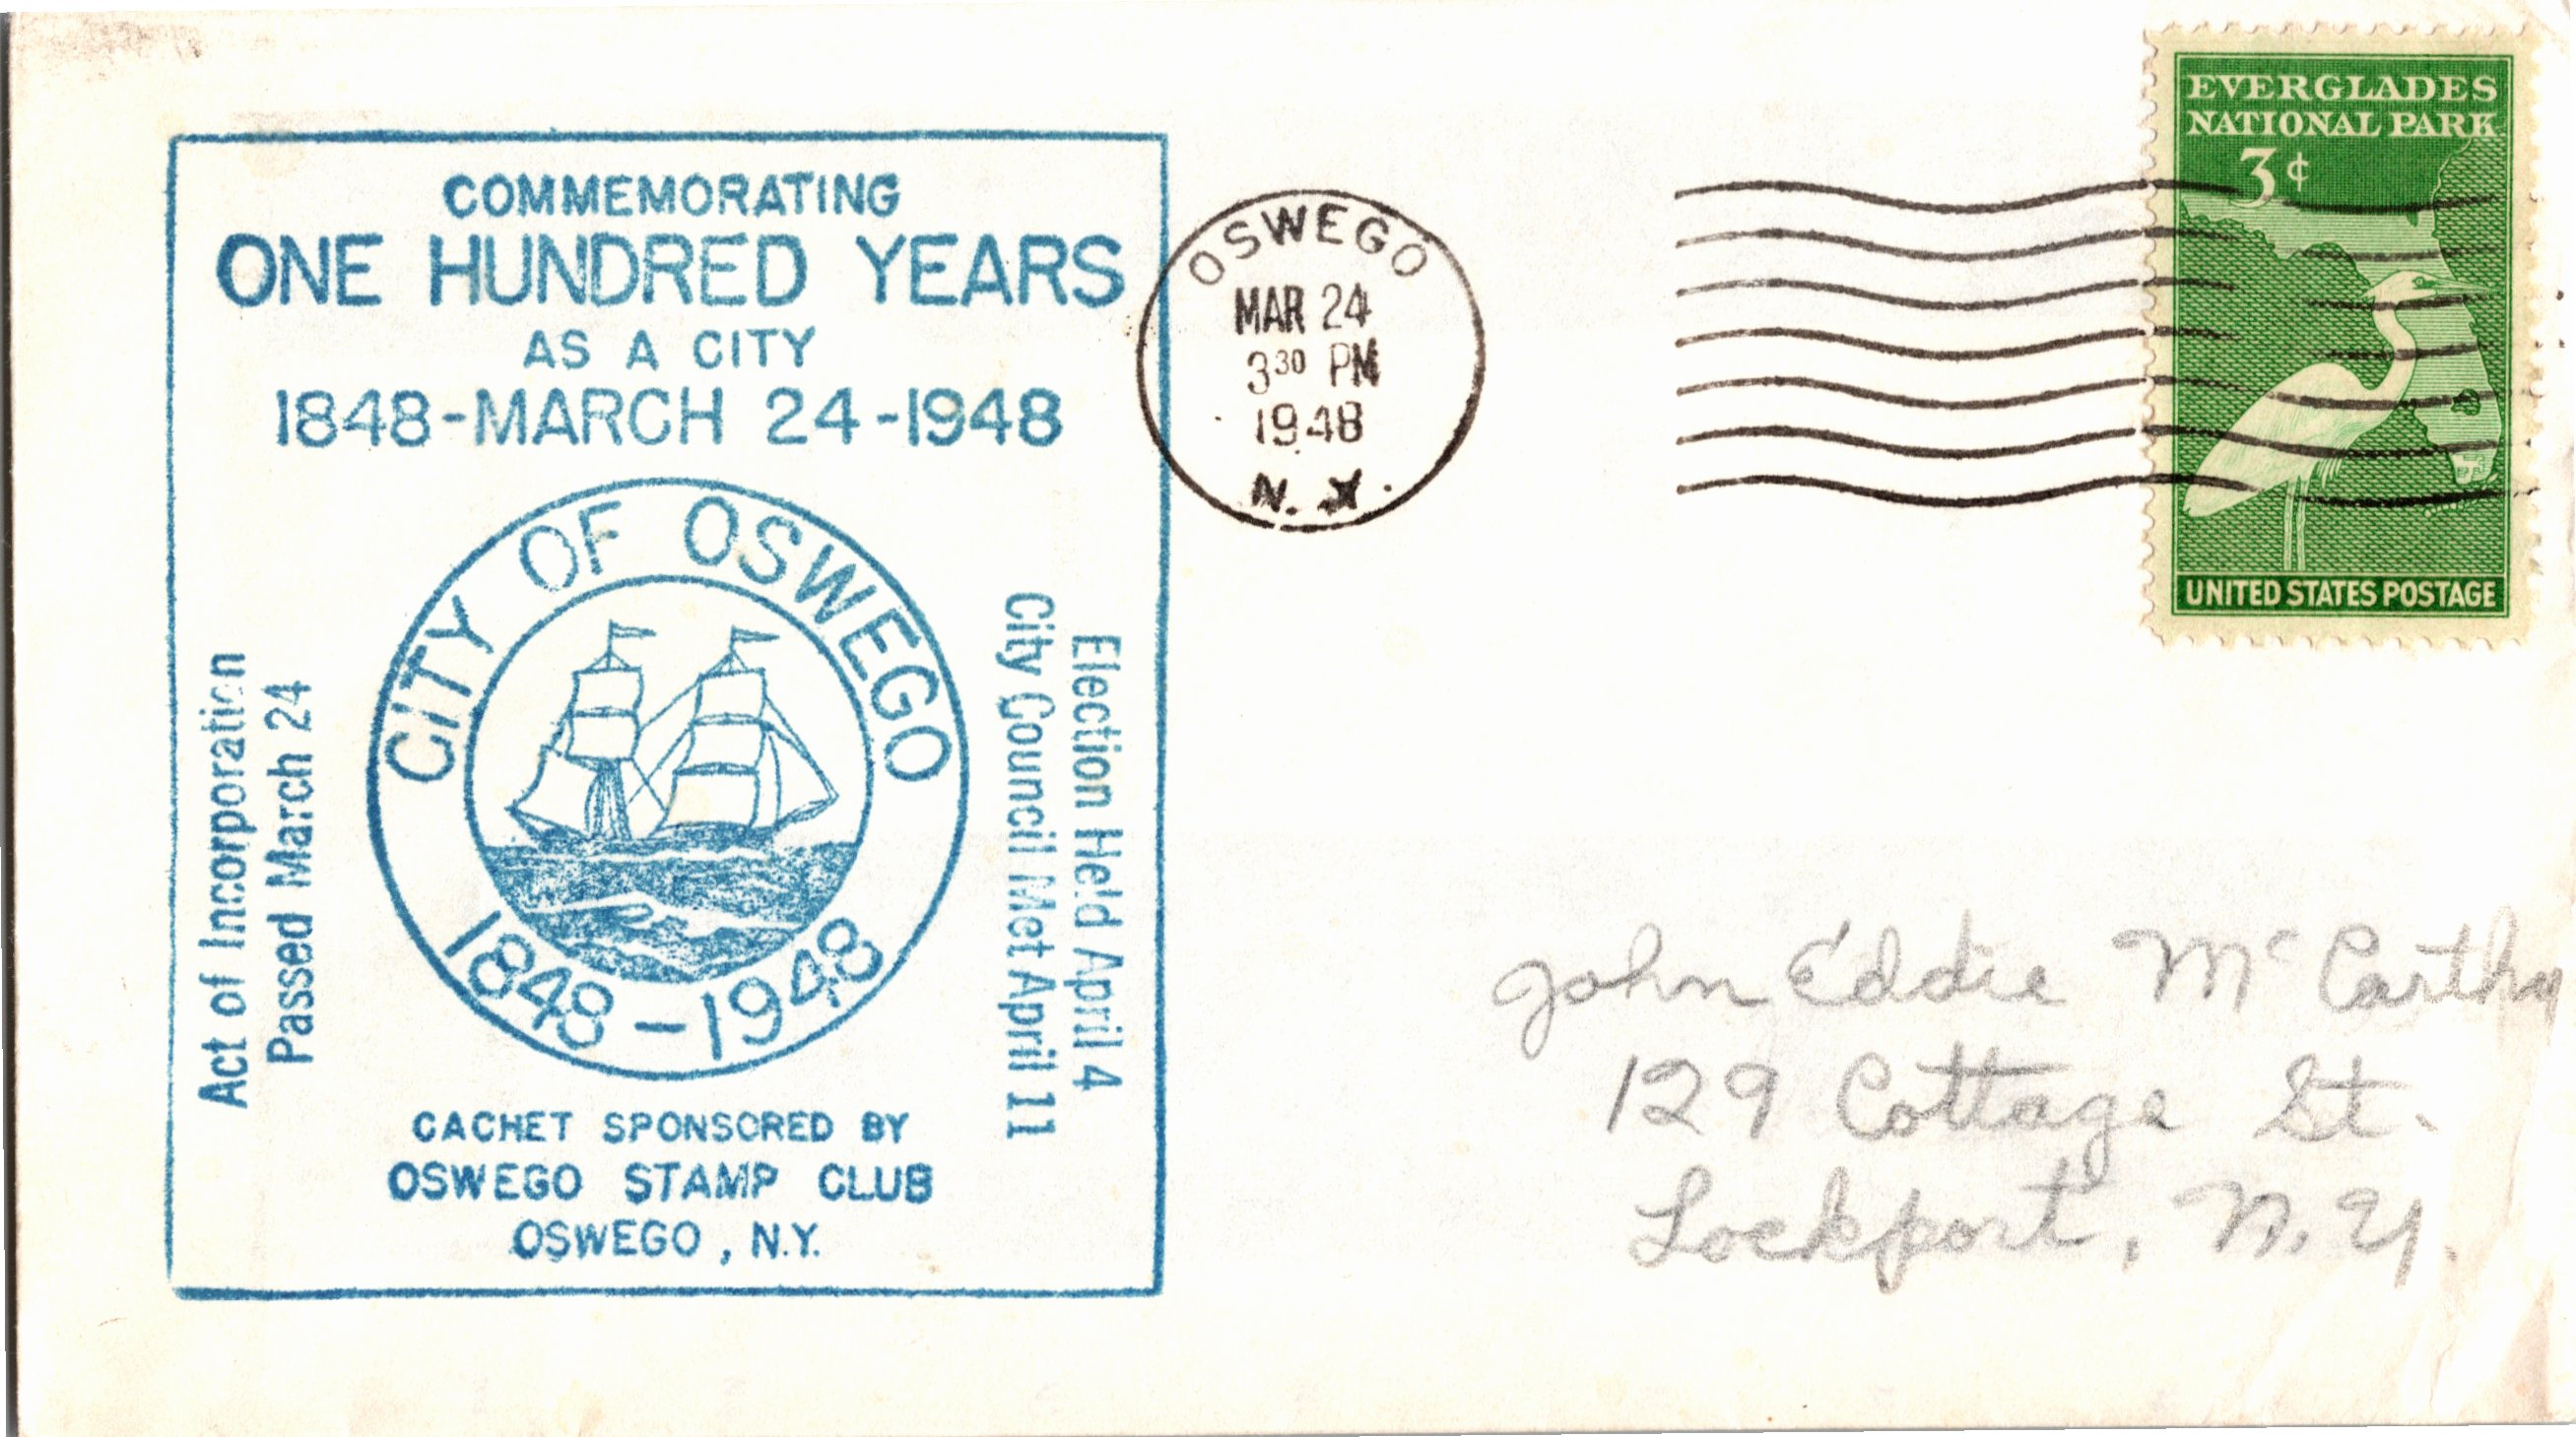 COMMEMORATING
ONE HUNDRED YEARS
AS A CITY
1848-MARCH 24-1948
CITY OF OSWEGO
1848-1948
Act of Incorporation
Passed March 24
Election Held April 4
City Council Met April 11
CACHET SPONSORED BY
OSWEGO STAMP CLUB
OSWEGO, N.Y.
OSWEGO
MAR 24
3 30 PM
1948
N. Y.
EVERGLADES
NATIONAL PARK
3¢
UNITED STATES POSTAGE
John Eddie McCarthy
129 Cottage St.
Lockport, N.Y.